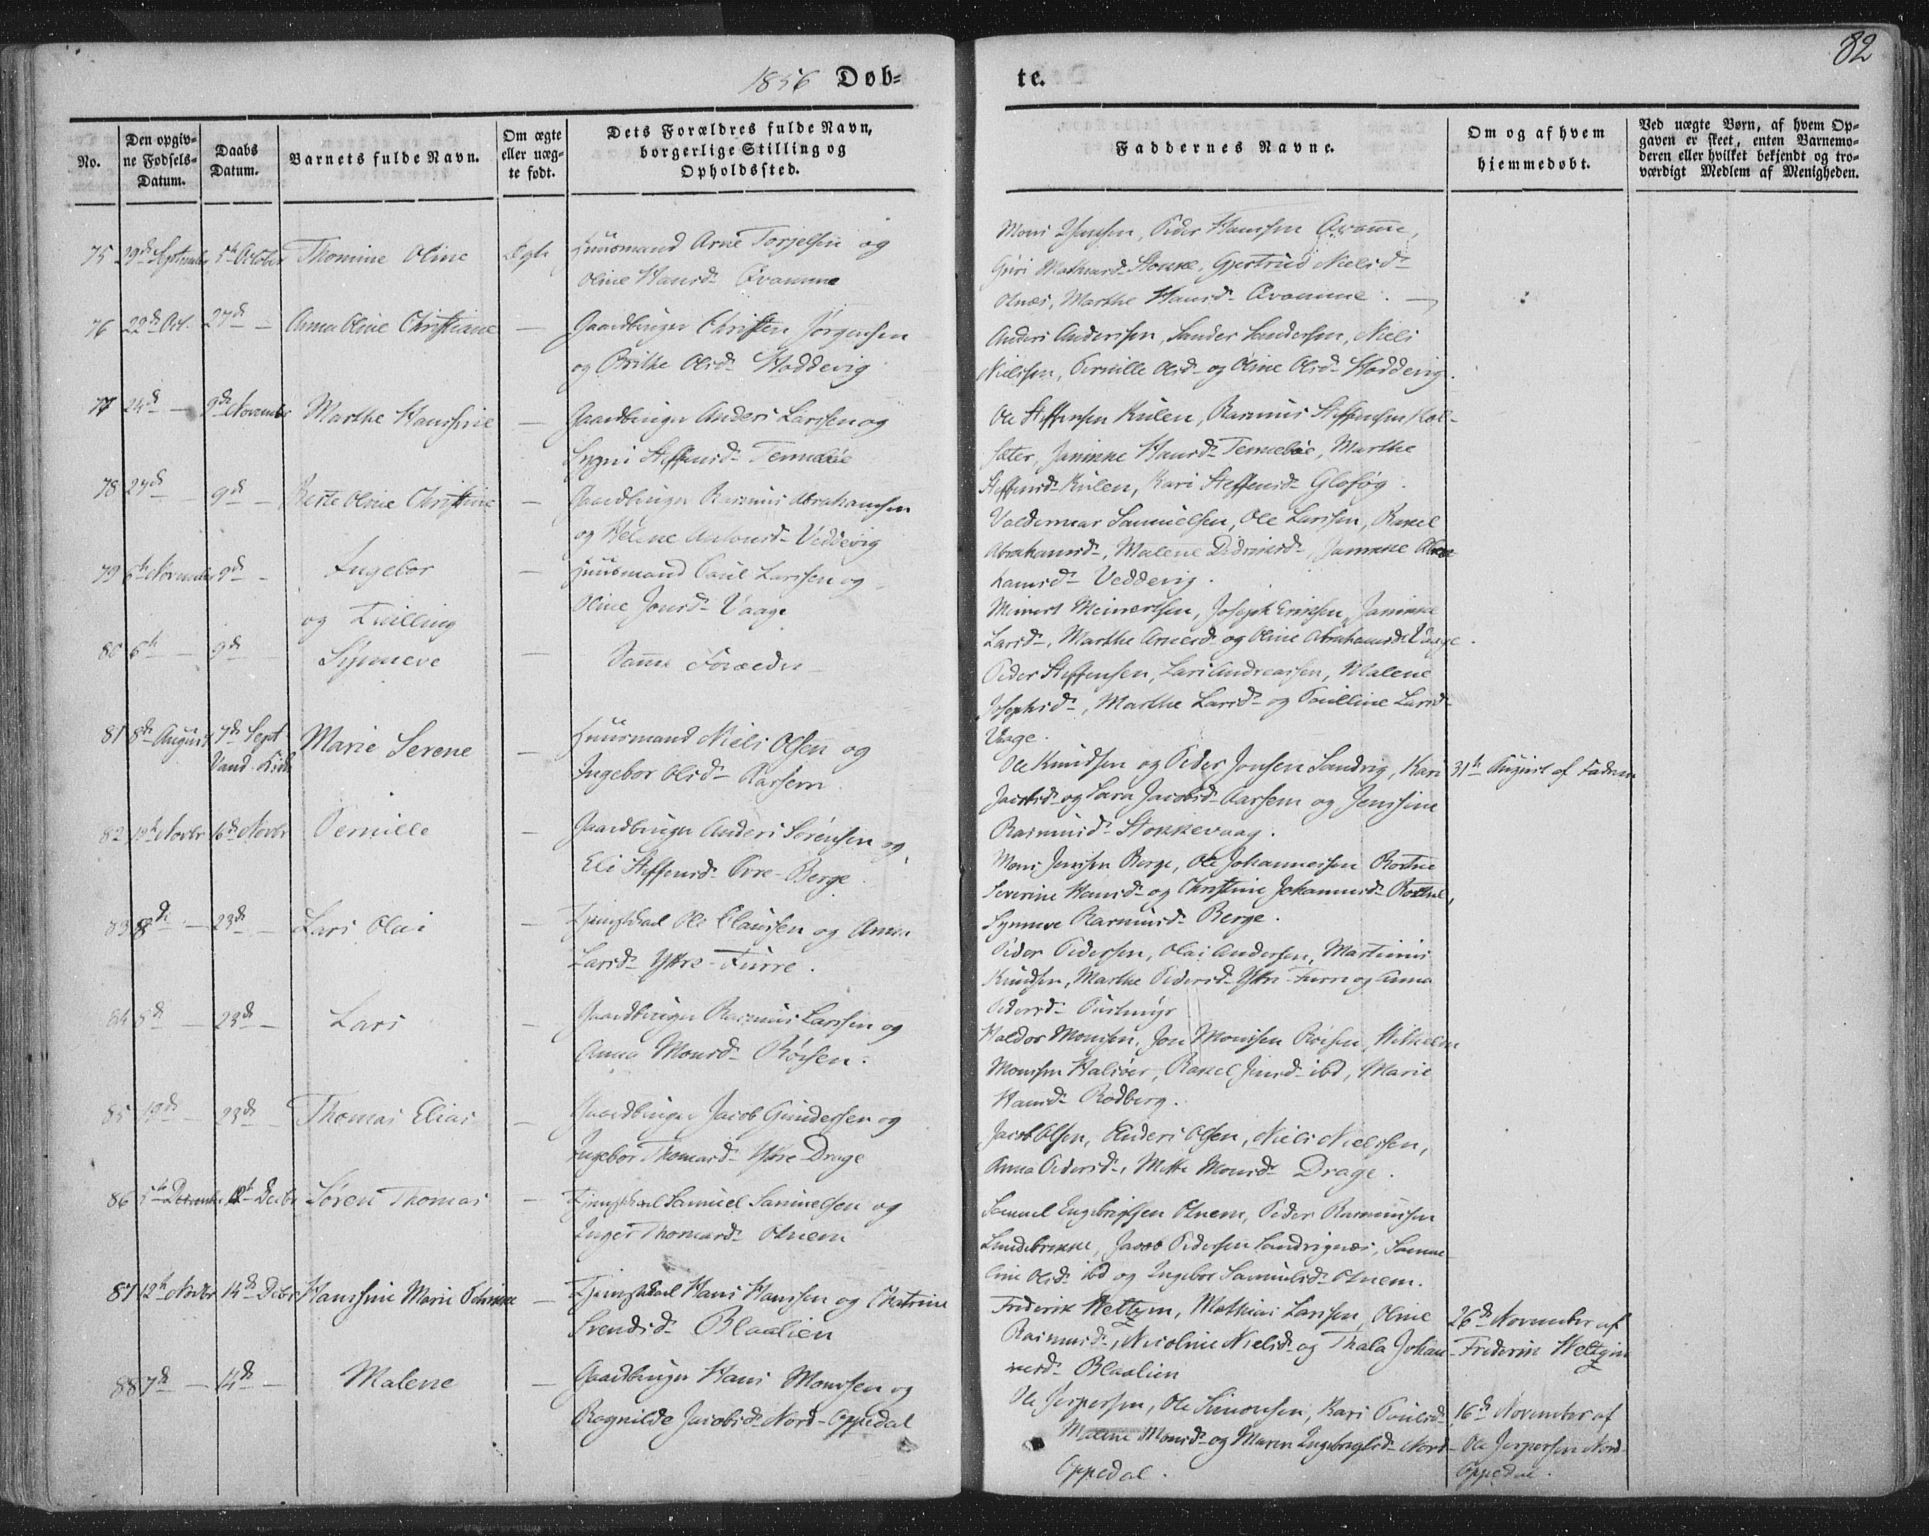 82
1856 Døb-
te.
No.
Den opgiv-
ne Fødsels-
Datum.
Daabs
Datum.
Barnets fulde Navn.
Om ægte
eller uæg-
te født.
Dets Forældres fulde Navn,
borgerlige Stilling og
Opholdssted.
Faddernes Navne.
Om og af hvem
hjemmedøbt.
Ved uægte Børn, af hvem Op-
gaven er skeet, enten Barnemo-
deren eller hvilket bekjendt og tro-
værdigt Medlem af Menigheden.
75 29de September 5te October Thomine Oline Ægte Huusmand Arne Torjelsen og
Oline Hansd. Qvamme
Mons Peder Hanssen Qvamme,
Guri Mathiasd. Stokke, Gjertrud Nielsd.
Marthe Hansd. Qvamme. —
76 22de Oct. 27de — Anna Oline Christiane — Gaardbruger Christen Jørgensen
og Brithe Olsd. Hoddevig
Anders Anderssen, Sander Sanderssen, Niels
Nielssen, Pernille Olsd. og Oline Olsd. Hoddevig.
77 24de — 9de November Marthe Hanssine — Gaardbruger Anders Larssen og
Steffensd. Tennebøe
Ole Steffensen Kulen, Rasmus Steffensen Hol-
sæter, Janikke Hansd. Tennebøe, Marthe
Steffensd. Kulen, Kari Steffensd.
78 27de — 9de — Oline Christine — Gaardbruger Rasmus Abrahamsen
og Helene Antonsd. Veddevig
Valdemar Samuelsen, Ole Larssen, Rakel
Abrahamsd., Malene Didriksd., Janikke Abra-
hamsd. Veddevig.
79 6te November 9de — Ingebor — Huusmand Paul Larssen og
Oline Jonsd. Vaage
og Tvilling
Meinert Meinertsen, Joseph Erikssen, Janikke
Larsd., Marthe Arnesd. og Oline Abrahamsd. Vaage.
80 6te — 9de — Synneve — Samme Forældre
Peder Steffensen, Lars Andreassen, Malene
Josephsd., Marthe Larsd. og Paulline Larsd.
Vaage.
81 8de August 7de Sept Marie Serene — Huusmand Niels Olsen og
Ingebor Olsd. Aarsem.
Ole Knudsen og Peder Jonsen Sandvig, Kari 31te August af Faderen
Jacobsd. og Sara Jacobsd. Aarsem og Jenssine
Rasmusd. Stokkevaag.
82 Novbr 16de Novbr Pernille — Gaardbruger Anders Sørensen og
Eli Steffensd. Øvre-Berge
Mons Jenssen Berge, Ole Johannessen
Severine Hansd. og Christine Johannesd.
Synneve Rasmusd. Berge.
83 8de — 23de — Lars Olai — Tjenestkarl Ole Claussen og Anna
Larsd. Yttre-Furre.
Peder Pederssen, Olai Andersen, Martinus
Knudsen, Marthe Pedersd. Yttre-Furre og Anna
Pedersd.
84 8de — 23de — Lars — Gaardbruger Rasmus Larssen og
Anna Monsd. Røisen.
Haldor Monssen, Jon Monssen Røisen, Wilhelm
Monssen Halsøer, Rakel ibd, Marie
Hansd. Rødberg.
85 19de — 23de — Thomas Elias — Gaardbruger Jacob Gundersen og
Ingebor Thomasd. Yttre Drage
Jacob Olsen, Anders Olsen, Niels Nielssen,
Anna Pedersd., Mette Monsd. Drage.
86 December Decbr Søren Thomas — Tjenestkarl Samuel Samuelsen og
Inger Thomasd. Otnem
Samuel Engebrigtsen Otnem, Peder Rasmussen
Jacob Pedersen Sandvignæs, Samue-
line Olsd. ibd og Ingebor Samuelsd. Otnem.
87 12te Novbr 14de Decbr Hanssine Marie Petrikke — Tjenestkarl Hans Hanssen og Chatrine
Svendsd. Blaalien
Frederik Weltzin, Mathias Larssen, Oline 26de November af
Rasmusd., Nicoline Nielsd. og Thala Johan- Frederik Weltzin
nesd. Blaalien
88 7de — 14de — Malene — Gaardbruger Hans Monssen og
Ragnilde Jacobsd. Nord-Oppedal
Ole Jespersen, Ole Simonsen, Kari Paulsd. 16de November af
Malene Monsd. og Maren Engebrigtsd. Nord- Ole Jespersen Nord-
Oppedal. Oppedal.